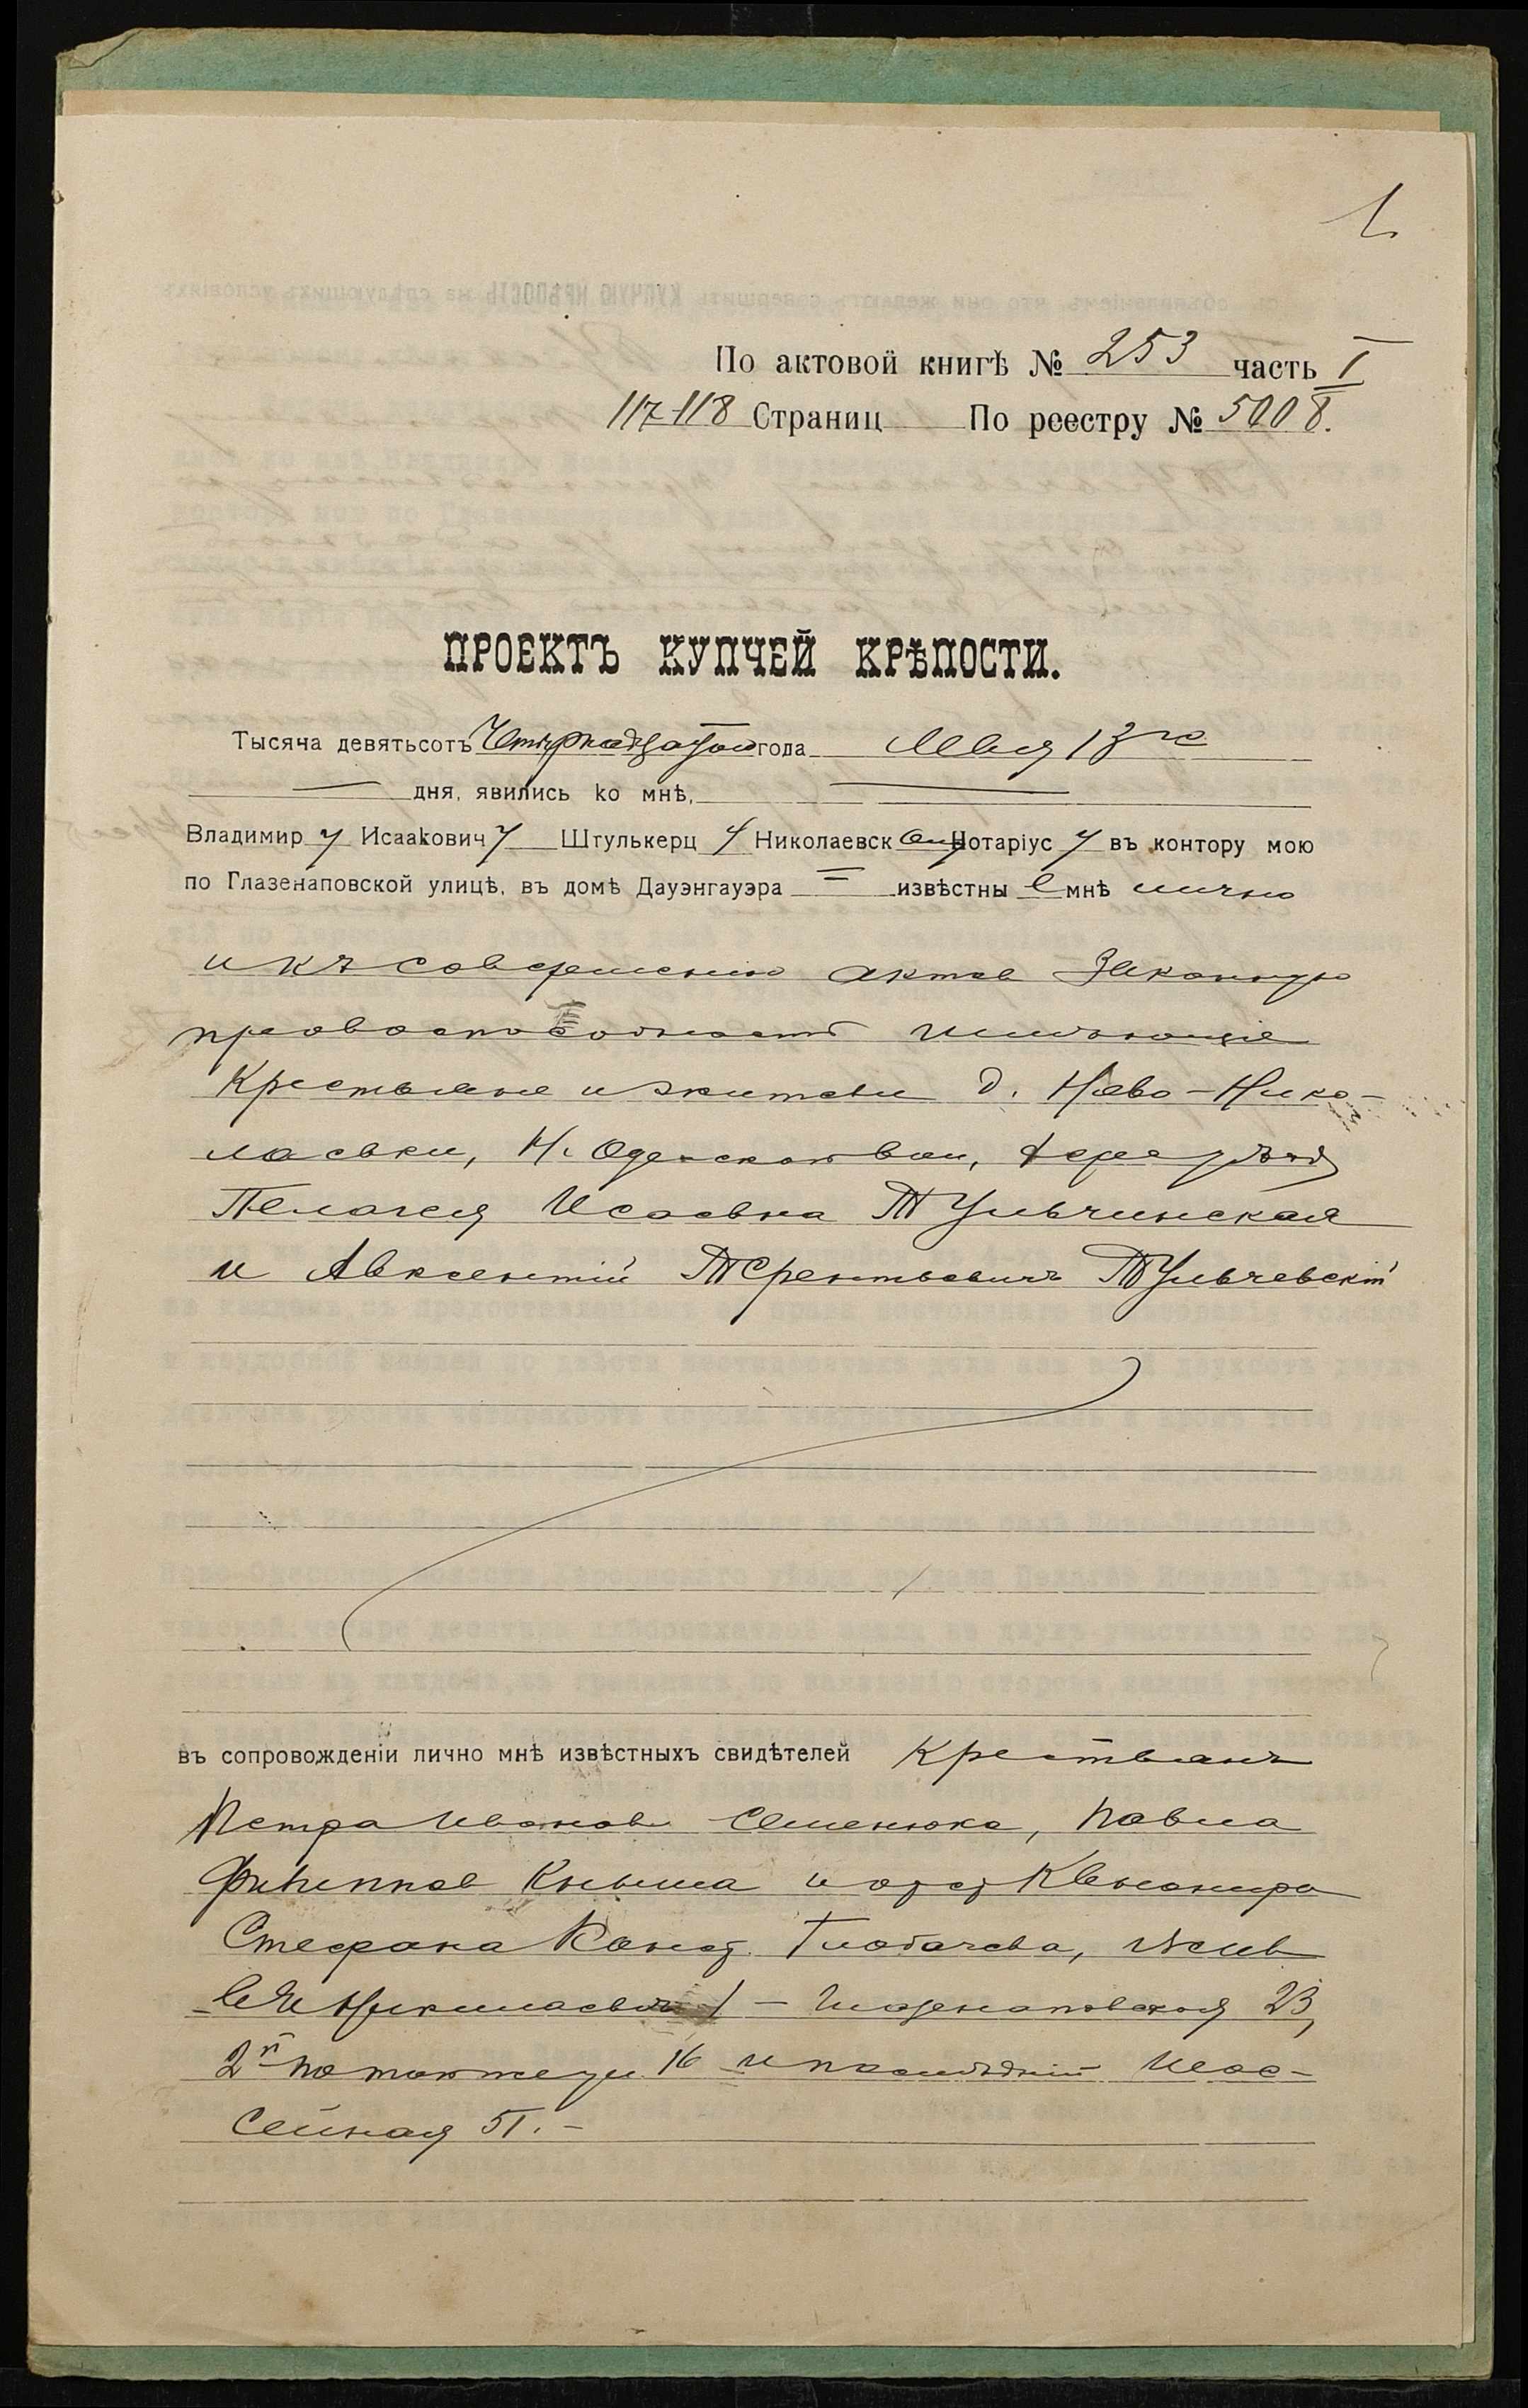 1
По актовой книгѣ № 253 часть I
117-118 Страниц По реестру № 5008.
ПРОЕКТЪ КУПЧЕЙ КРѢПОСТИ.
Тысяча девятьсотъ Четырнадцатого года Мая 13го
дня, явились ко мнѣ,
Владимир у Исаакович у Штулькерц у Николаевск ому Нотаріус у въ контору мою
по Глазенаповской улицѣ, въ домѣ Дауэнгауэра извѣстны е мнѣ лично
и къ совершенію актов законную
правоспособность имѣющіе
Крестьяне и жители д. Ново-Нико-
лаевки, Н. Одесской вол,
Пелагея Исаевна Тульчинская
и Авксентій Терентьевичъ Тульчевскій
въ сопровожденіи лично мнѣ извѣстныхъ свидѣтелей Крестьянъ
Петра Иванов Семенюка, Павла
Филиппов Кныша и
Стефана Конст.
Николаевѣ 1 – Глазенаповская 23,
2й по той же ул. 16 и послѣдній
51. –